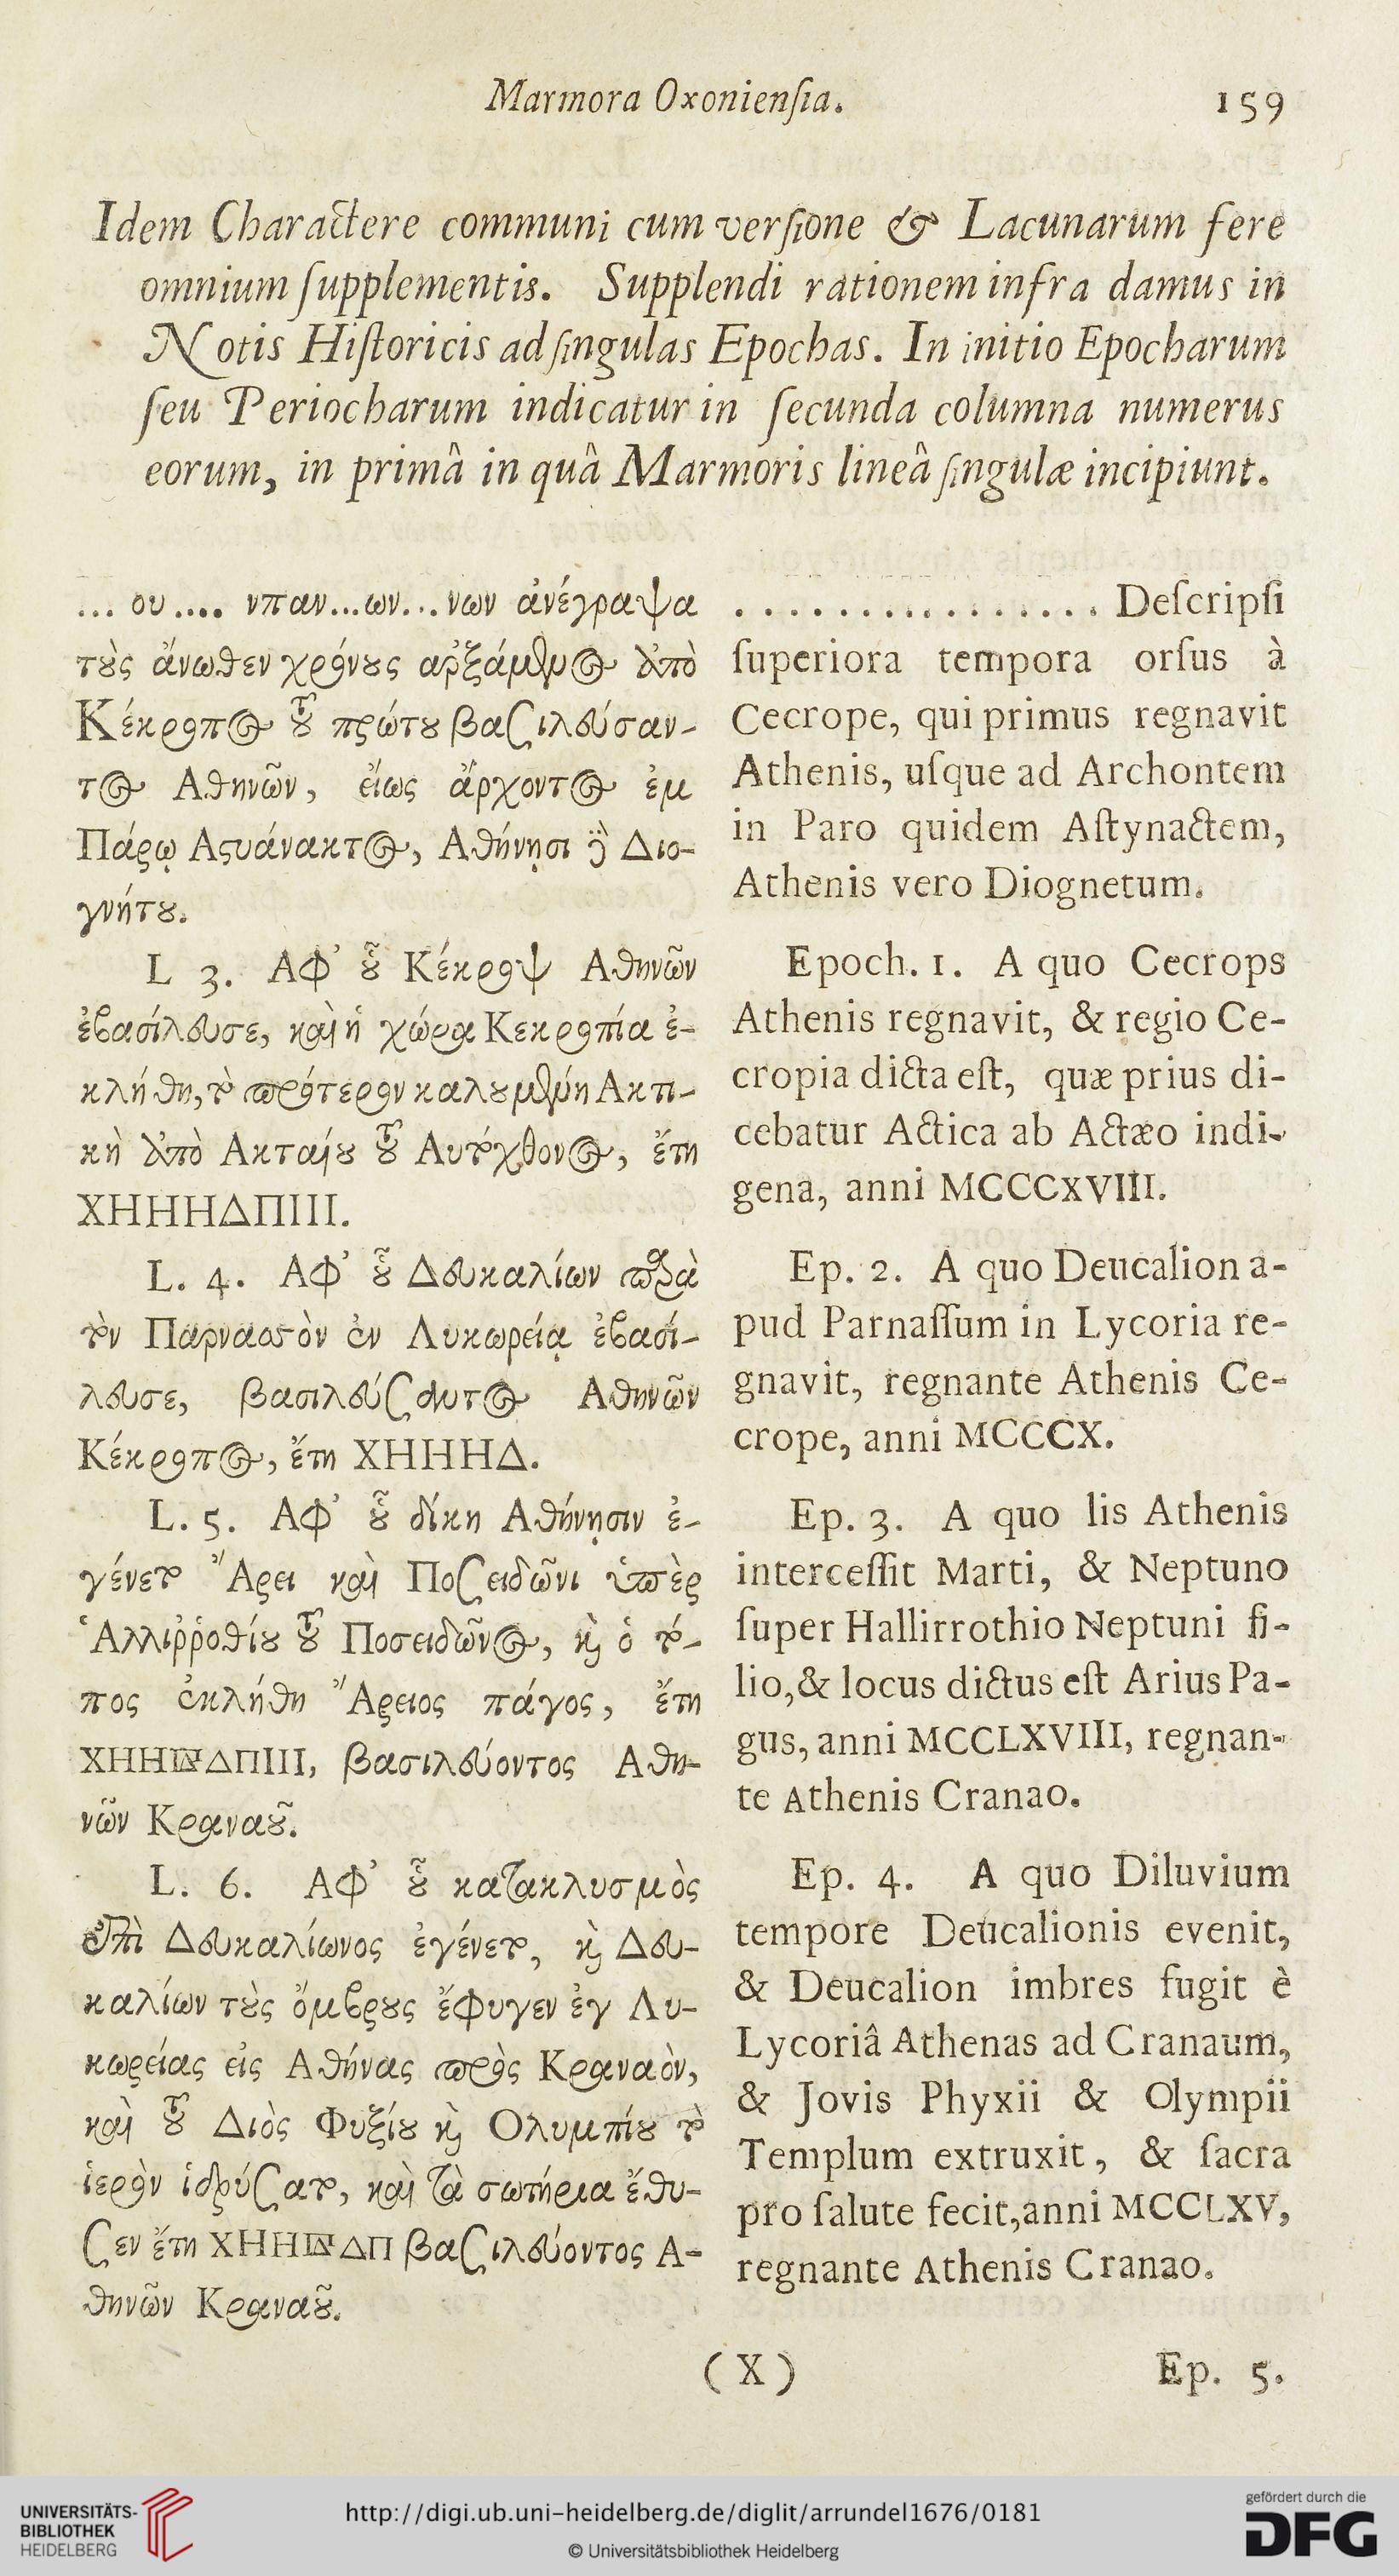 Marmora Oxonienſia.
159
Idem Charactere communi cum verſione & Lacunarum fere
omnium ſupplementis. Supplendi rationem infra damus in
Notis Hiſtoricis ad ſingulas Epochas. In initio Epocharum
ſeu Periocharum indicatur in ſecunda columna numerus
eorum, in primâ in quâ Marmoris lineâ ſingulæ incipiunt.
... ου .... νπαν...ων...νων ἀνέγραψα
τȣ̀ς ἄνωθεν χρόνȣς αρξάμενος ἀπὸ
Κέκροπος τȣ͂ πρώτȣ βασιλεύσαν-
τος Αθηνῶν, εἵως ἄρχοντος ἐμ
Πάρῳ Αϛυάνακτος, Αθήνησι δὲ Διο-
γνήτȣ.
L 3. Αφ' ȣ̔͂ Κέκροψ Αθηνῶν
ἐβασίλευσε, καὶ ἡ χώρα Κεκροπία ἐ-
κλήθη, τὸ πρότερον καλȣμένη Ακτι-
κὴ ἀπὸ Ακταίȣ τȣ͂ Αυτόχθονος, ἔτη
ΧΗΗΗΔΠΙΙΙ.
L. 4. Αφ' ȣ̔͂ Δευκαλίων παρὰ
τὸν Παρνασσὸν ἐν Λυκωρείᾳ ἐβασί-
λευσε, βασιλεύοντος Αθηνῶν
Κέκροπος, ἔτη ΧΗΗΗΔ.
L. 5. Αφ' ȣ̔͂ δίκη Αθήνησιν ἐ-
γένετο Ἄρει καὶ Ποσειδῶνι ὑπὲρ
Ἁλλιῤῥοθίȣ τȣ͂ Ποσειδῶνος, καὶ ὁ τό-
πος ἐκλήθη Ἄρειος πάγος, ἔτη
ΧΗΗ𐅄ΔΠΙΙΙ, βασιλεύοντος Αθη-
νῶν Κραναȣ͂.
L. 6. Αφ' ȣ̔͂ κατακλυσμὸς
ἐπὶ Δευκαλίωνος ἐγένετο, καὶ Δευ-
καλίων τȣ̀ς ὄμβρȣς ἔφυγεν ἐγ Λυ-
κωρείας εἰς Αθήνας πρὸς Κραναὸν,
καὶ τȣ͂ Διὸς Φυξίȣ καὶ Ολυμπίȣ τὸ
ἱερὸν ἱδρύσατο, καὶ τὰ σωτήρια ἔθυ-
σεν ἔτη ΧΗΗ𐅄ΔΠ βασιλεύοντος Α-
θηνῶν Κραναȣ͂.
. . . . . . . . . . . . . . . . Deſcripſi
ſuperiora tempora orſus à
Cecrope, qui primus regnavit
Athenis, uſque ad Archontem
in Paro quidem Aſtynactem,
Athenis vero Diognetum.
Epoch. 1. A quo Cecrops
Athenis regnavit, & regio Ce-
cropia dicta eſt, quæ prius di-
cebatur Actica ab Actæo indi-
gena, anni MCCCXVIII.
Ep. 2. A quo Deucalion a-
pud Parnaſſum in Lycoria re-
gnavit, regnante Athenis Ce-
crope, anni MCCCX.
Ep. 3. A quo lis Athenis
interceſſit Marti, & Neptuno
ſuper Hallirrothio Neptuni fi-
lio, & locus dictus eſt Arius Pa-
gus, anni MCCLXVIII, regnan-
te Athenis Cranao.
Ep. 4. A quo Diluvium
tempore Deucalionis evenit,
& Deucalion imbres fugit è
Lycoriâ Athenas ad Cranaum,
& Jovis Phyxii & Olympii
Templum extruxit, & ſacra
pro ſalute fecit, anni MCCLXV,
regnante Athenis Cranao.
(X)
Ep. 5.
UNIVERSITÄTS-
BIBLIOTHEK
HEIDELBERG
http://digi.ub.uni-heidelberg.de/diglit/arrundel1676/0181
© Universitätsbibliothek Heidelberg
gefördert durch die
DFG